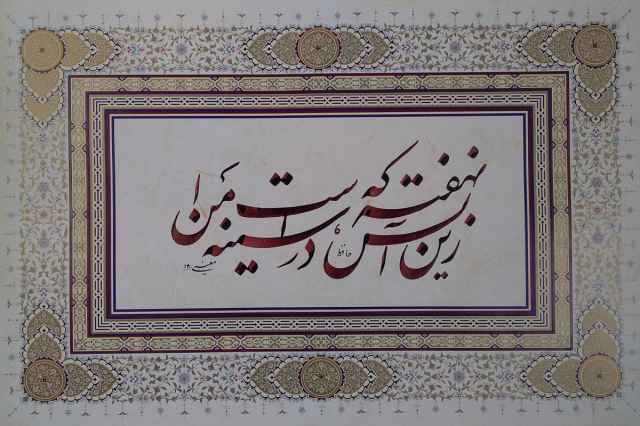 زین آتش نهفته که در سینه من است
حافظ